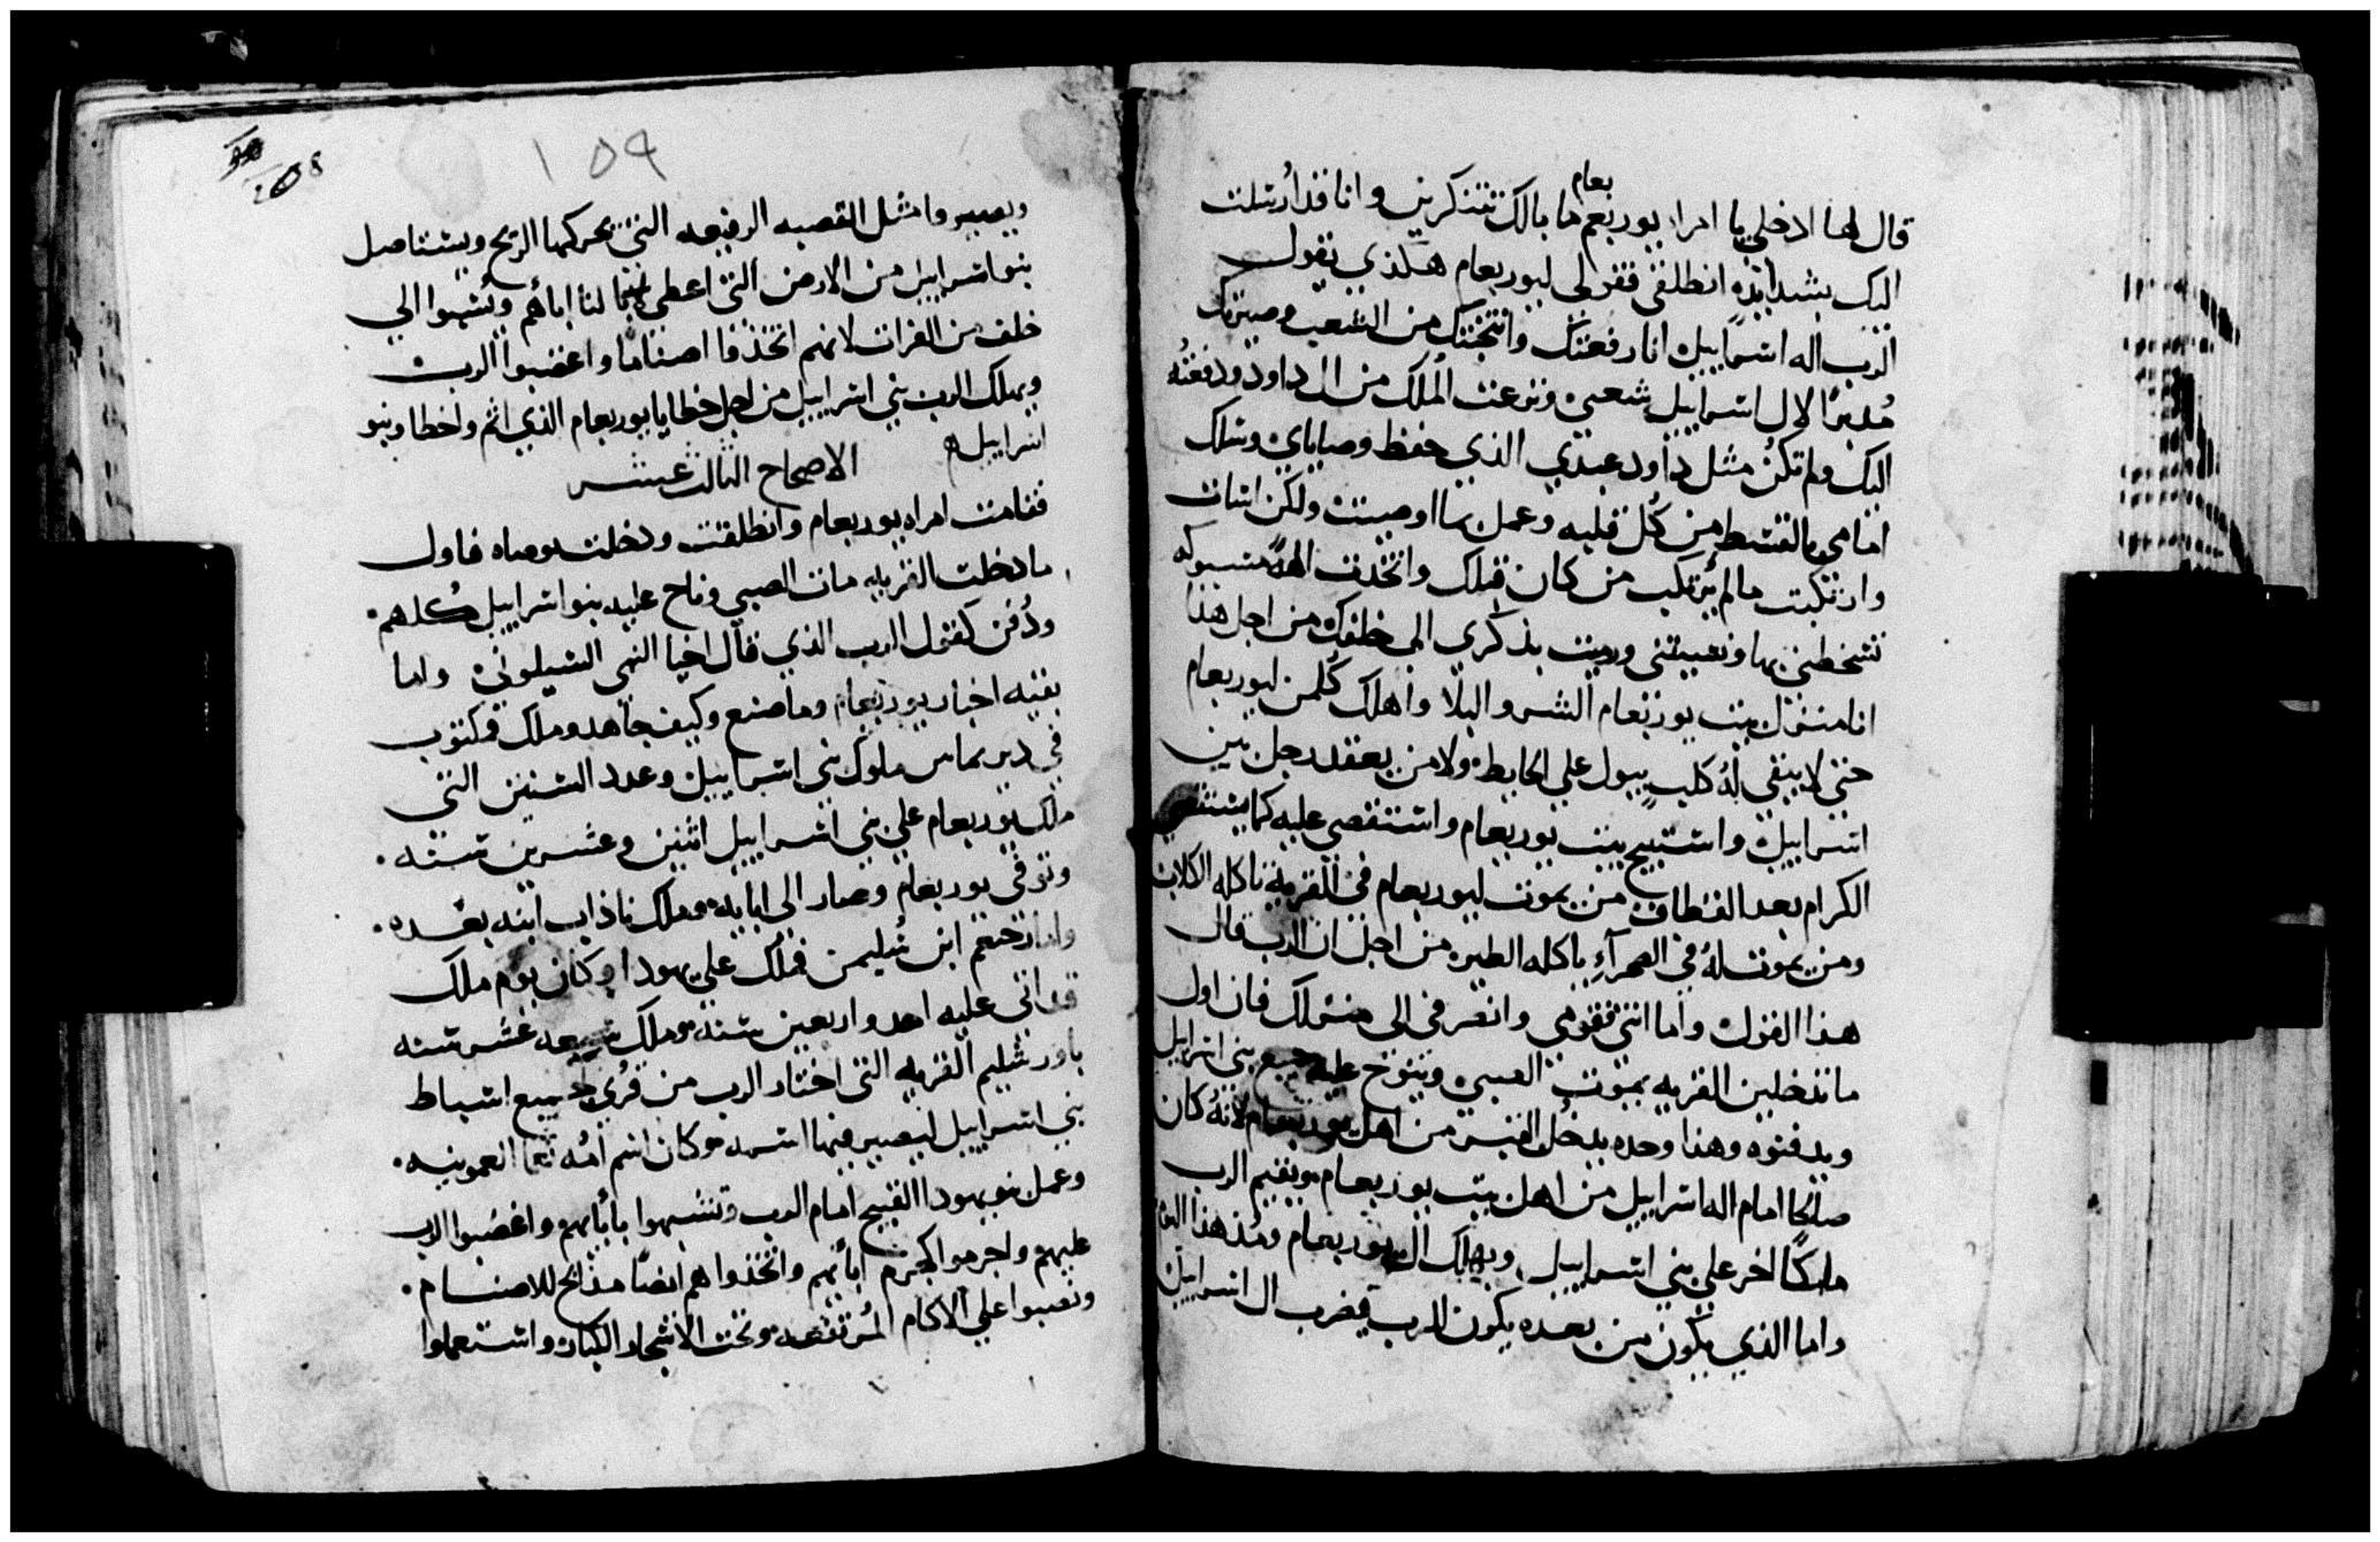 بعام
قال لها ادخلي يا امراه يوربعم ما بالك تتنكرين وانا قد ارسلت
اليك بشدايد انطلقي فقولي ليوربعام هكذي يقول
الرب اله اسراييل انا رفعتك وانتخبتك من الشعب وصيرتك
مُدبرًا لال اسراييل شعبي ونزعت المُلك من ال داود ودفعته
اليك ولم تكن مثل داود عبدي الذي حفظ وصاياي وسلك
امامي بالقسط من كُل قلبه وعمل بما اوصيت ولكن اسات
وارتكبت ما لم يرتكب من كان قبلك واتخذت الهةً مسبوكه
تسخطني بها ورميت بذكري الى خلفك من اجل هذا
انا منزل ببيت يوربعام الشر والبلا واهلك كُلمن ليوربعام
حتى لا يبقي لهُ كلب يبول علي الحايط ولا من يعقد رجل بين
اسراييل واستبيح بيت يوربعام واستقصي عليه كما يستقصي
الكرام بعد القطاف من يموت ليوربعام في القريه تاكله الكلاب
ومن يموت لهُ في الصحراءِ ياكله الطير من اجل ان الرب قال
هذا القول واما انتي فقومي وانصرفي الى منزلك فان اول
ما تدخلين القريه يموت الصبي وينوح عليه جميع بني اسراييل
ويدفنوه وهذا وحده يدخل القبر من اهل يوربعام لانهُ كان
صالحًا امام اله اسراييل من اهل بيت يوربعام ويقيم الرب
ملكًا اخر علي بني اسراييل ويهلك ال يوربعام ومُذ هذا
واما الذي يكون من بعده يكون الرب يضرب ال اسراييل
١٥٩
ويصيروا مثل القصبه الرفيعه التي تحركها الريح ويستاصل
بنو اسراييل من الارض التي اعطى اباهم الي
خلف من الفرات لانهم اتخذوا اصنامًا واغضبوا الرب
ويهلك الرب بني اسراييل من اجل خطايا يوربعام الذي اثم واخطا وبنو
اسراييل الاصحاح الثالث عشر
فقامت امراه يوربعام وانطلقت ودخلت فاول
ما دخلت القريه مات الصبي وناح عليه بنو اسراييل كُلهم
ودُفن كقول الرب الذي قال اخيا النبي الشيلوني واما
بقيه اخبار يوربعام وما صنع وكيف جاهد وملك مكتوب
في دبريماس ملوك بني اسراييل وعدد السنين التي
ملك يوربعام علي بني اسراييل اثنين وعشرين سنه
وتوفي يوربعام وصار الى ابايه وملك ناذاب ابنه بعده
واما رحبعم ابن سُليمن فملك علي يهودا وكان يوم ملك
قد اتى عليه احد واربعين سنه وملك سبعه عشر سنه
باورشليم القريه التي اختار الرب من قُري جميع اسباط
بني اسراييل ليصير فيها اسمه وكان اسم امُه نعما العمونيه
وعمل بنو يهودا القبيح امام الرب وتشبهوا بأبايهم واغضبوا الرب
عليهم واجرموا كجرم ابايهم واتخذوا هم ايضًا مذابح للاصنام
ونصبوا علي الاكام المُرتفعه وتحت الاشجار الكبار واستعملوا